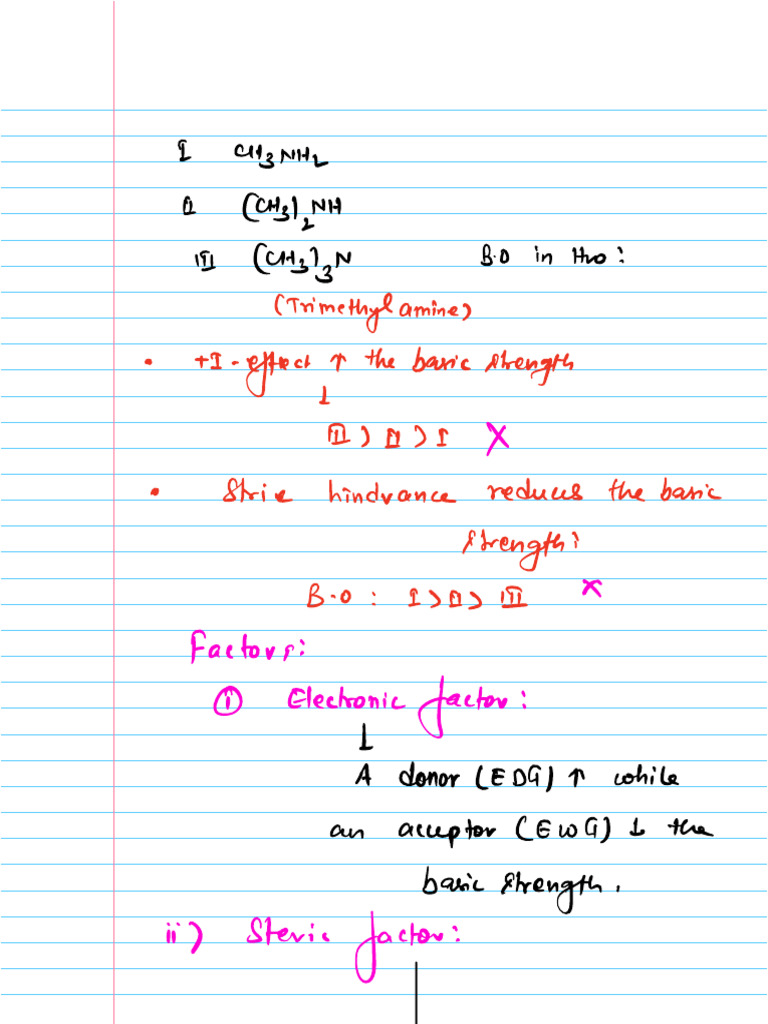 I CH3NH2
II (CH3)2NH
III (CH3)3N B.O in H2O:
(Trimethylamine)
• +I-effect ↑ the basic strength
↓
III > II > I ×
• Stric hindrance reduces the basic
strength:
B.O: I > II > III ×
Factors:
① Electronic factor:
↓
A donor (EDG) ↑ while
an acceptor (EWG) ↓ the
basic strength.
ii) Steric factor: